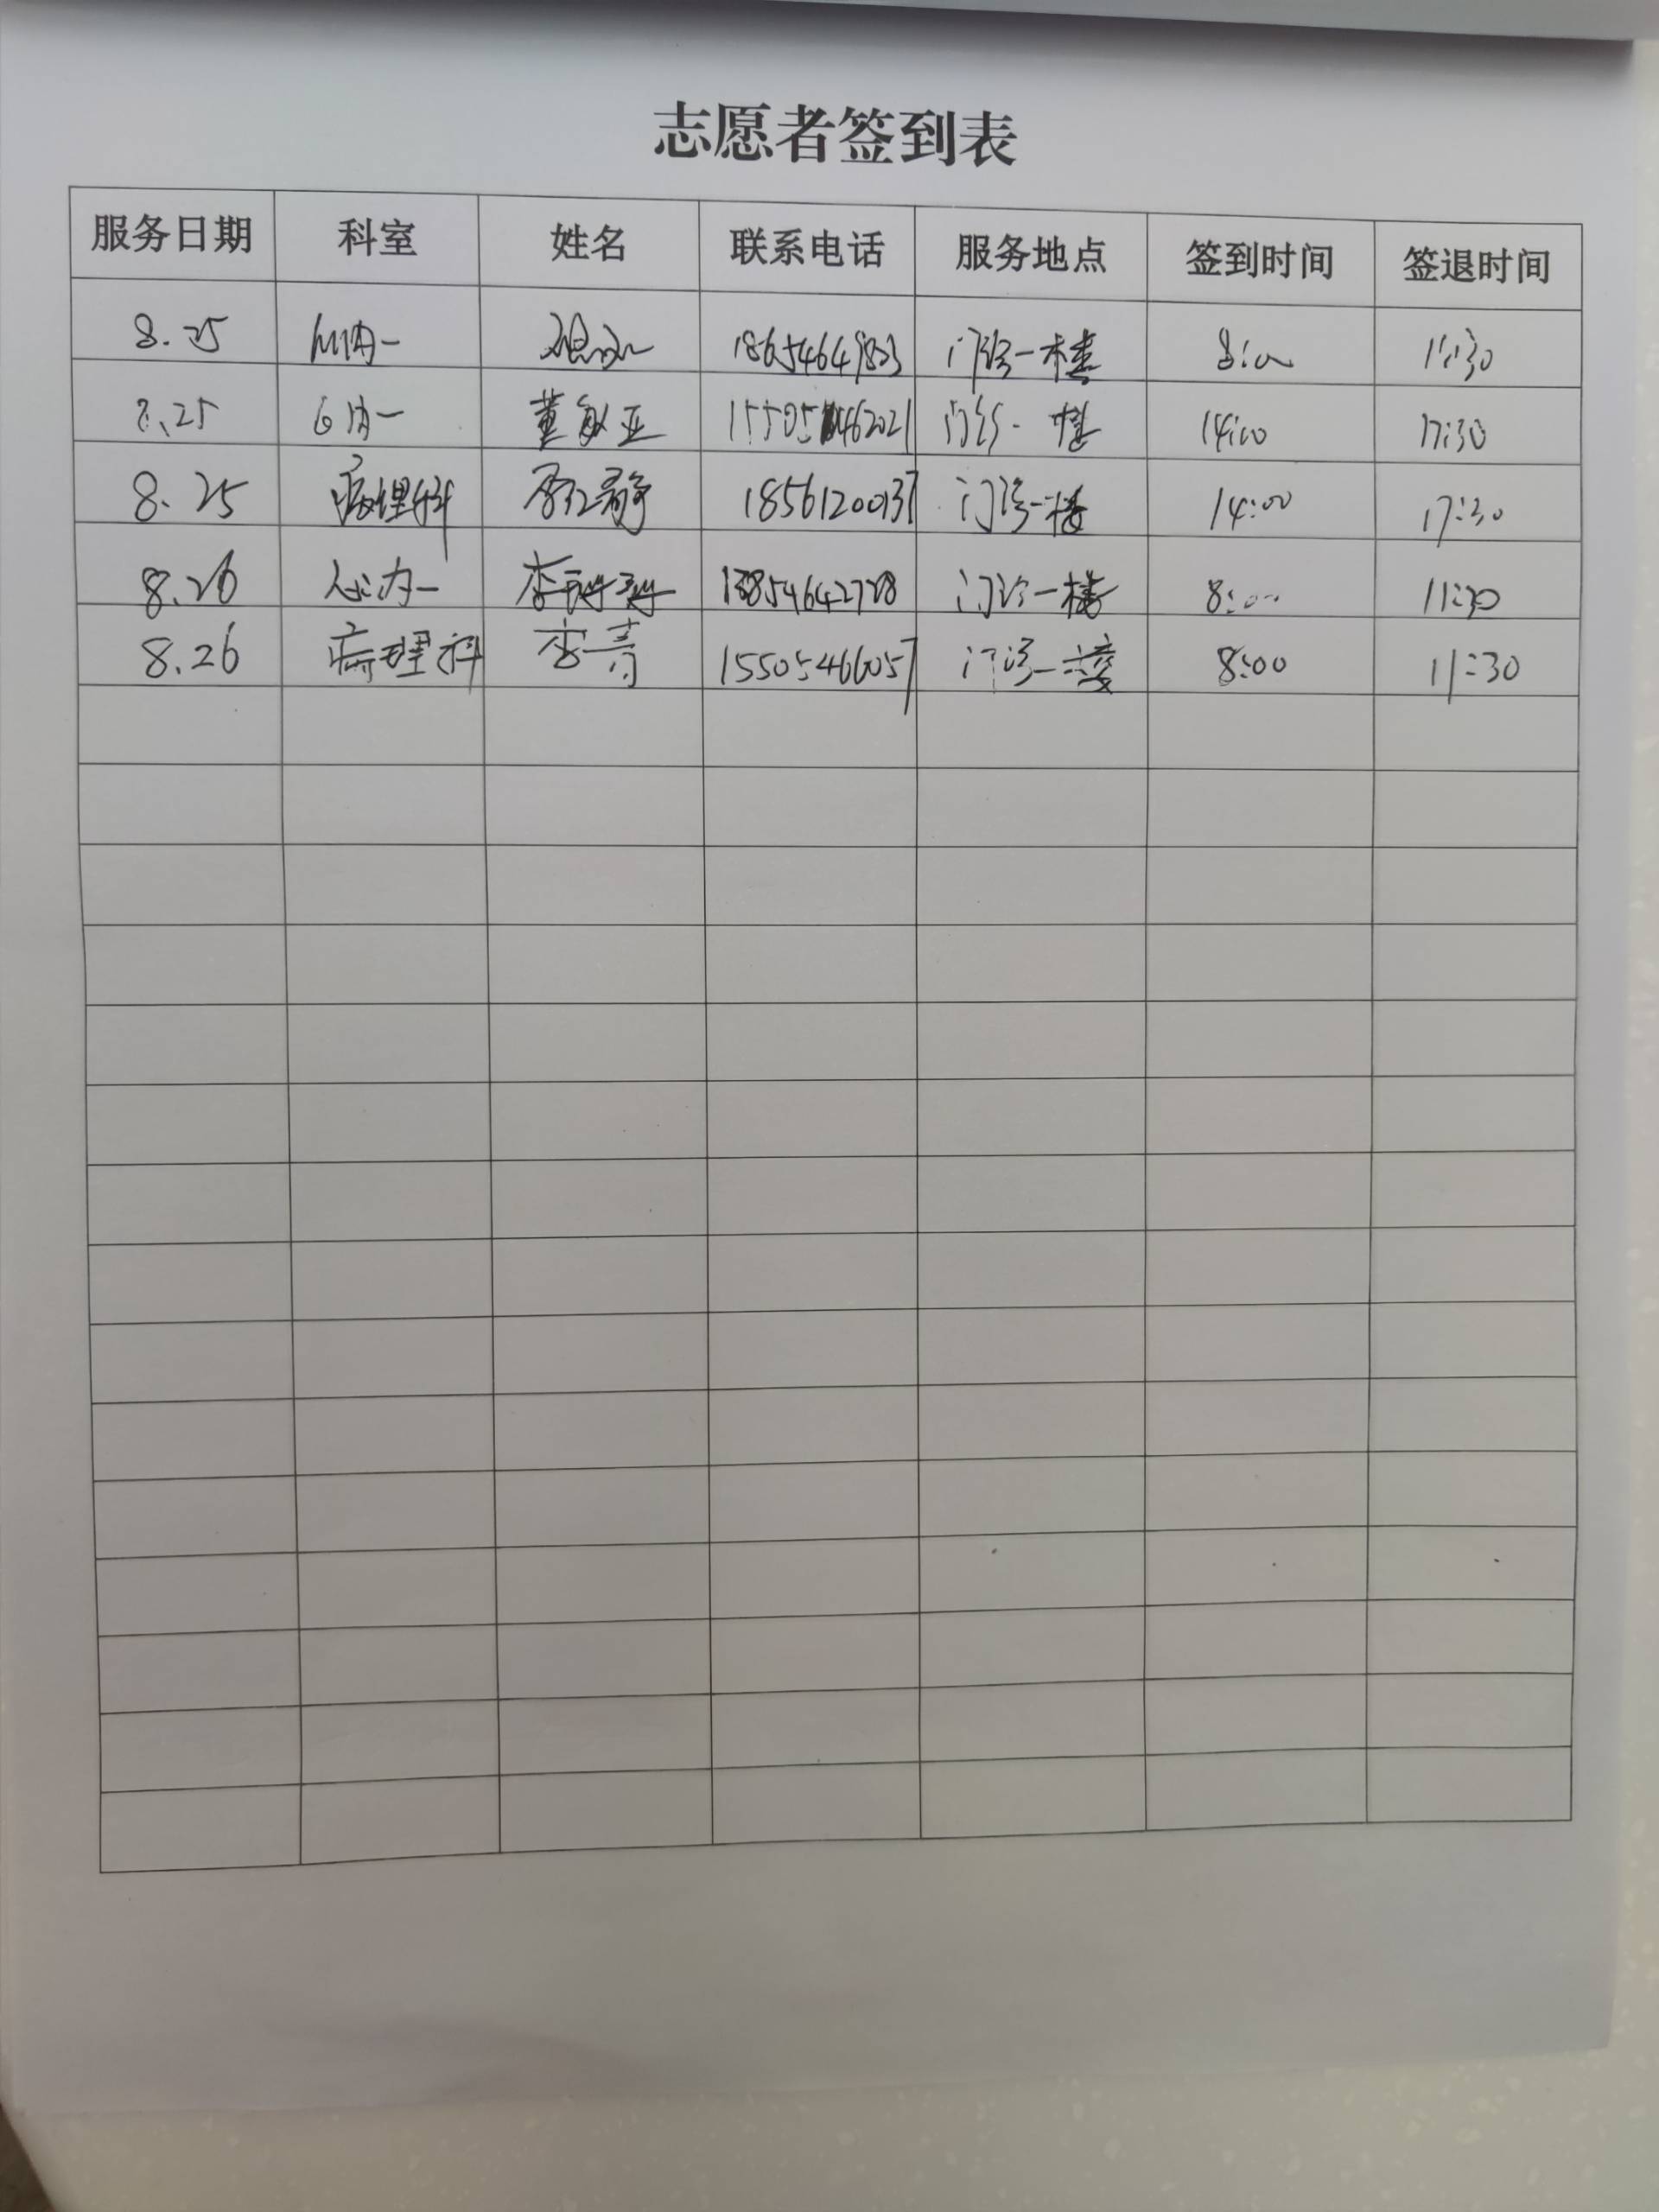 志愿者签到表
服务日期 科室 姓名 联系电话 服务地点 签到时间 签退时间
8.25 内一 门诊一楼 8:00 11:30
8.25 内一 董敏亚 门诊一楼 14:00 17:30
8.25 病理科 静 18561200137 门诊一楼 14:00 17:30
8.26 心内一 李珊珊 13854642728 门诊一楼 8:00 11:30
8.26 病理科 李青 15505466057 门诊一楼 8:00 11:30